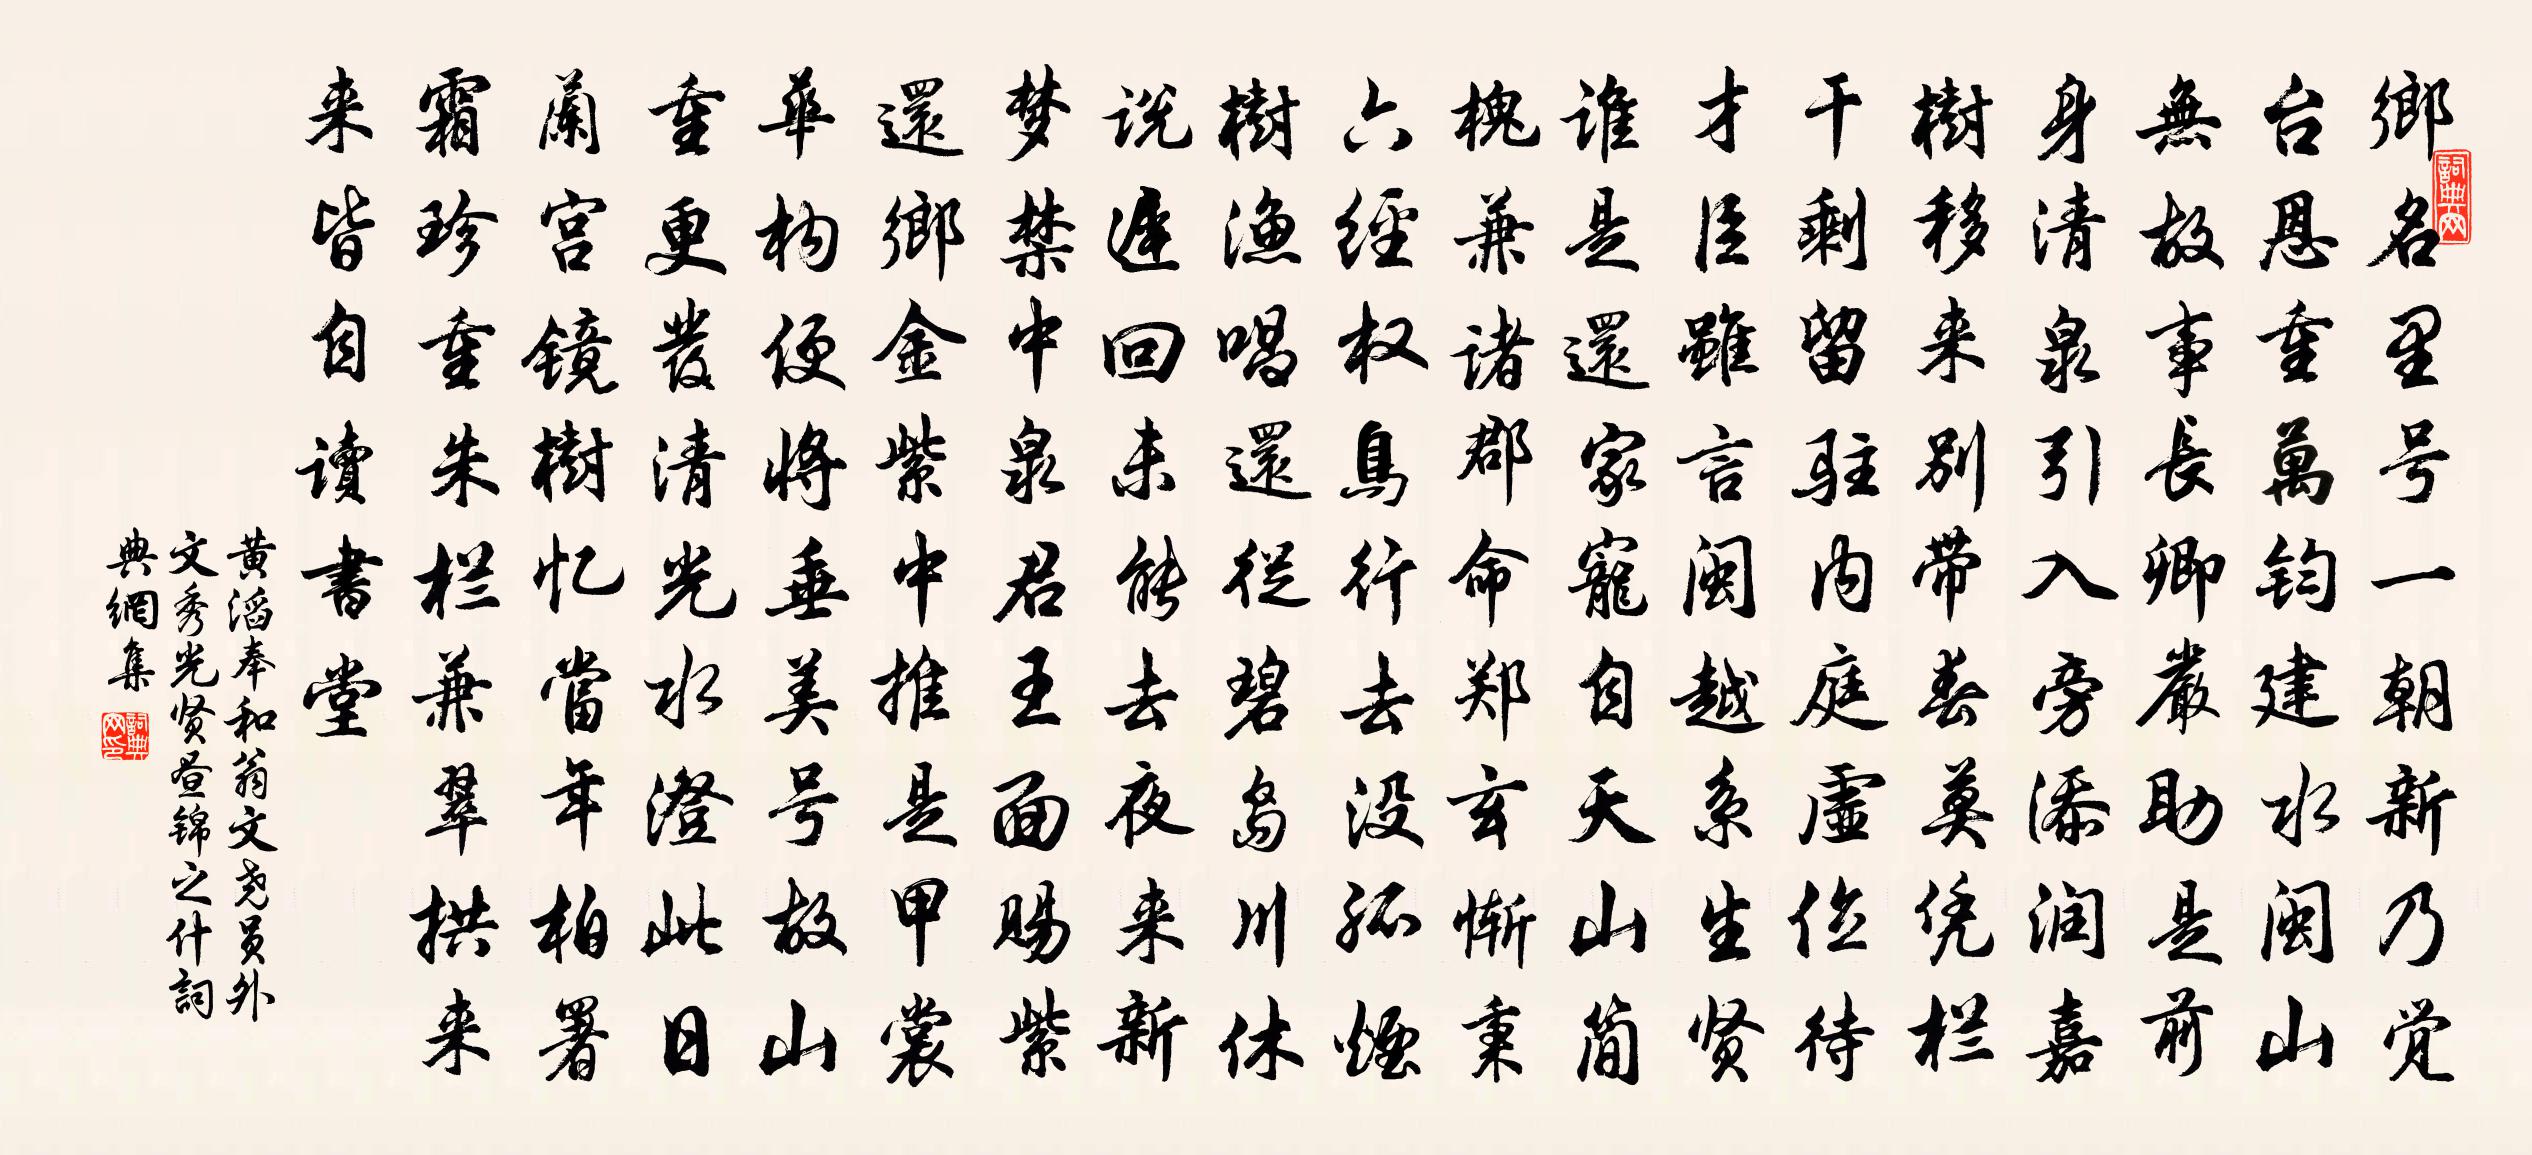 鄉名里号一朝新乃觉
台恩重萬钧建水闽山
無故事長卿嚴助是前
身清泉引入旁添润嘉
樹移来别带春莫凭栏
干剩留駐内庭虚位待
才臣雖言闽越系生贤
谁是還家寵自天山简
槐兼諸郡命郑玄惭秉
六經权鳥行去没孤煙
樹漁唱還從碧岛川休
说遲回未能去夜来新
梦禁中泉君王面賜紫
還鄉金紫中推是甲裳
華构便将垂美号故山
重更發清光水澄此日
蘭宫镜樹忆當年柏署
霜珍重朱栏兼翠拱来
来皆自读書堂
黄滔奉和翁文尧员外
文秀光贤昼锦之什詞
典網集
詞典网
詞典网印